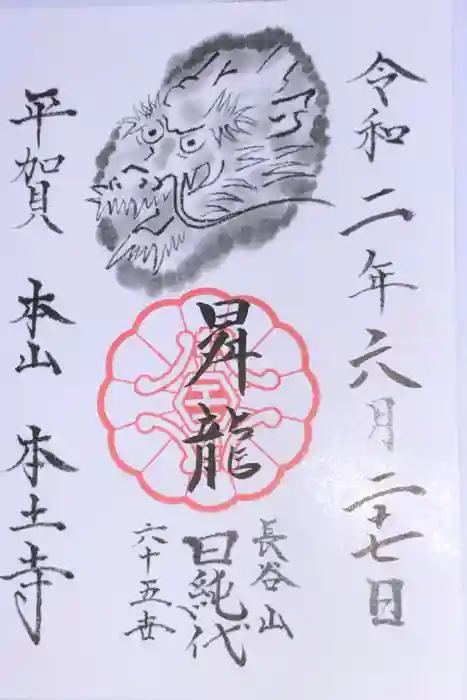 令和二年六月二十七日
昇龍
長谷山
日純代
六十五世
平賀 本山 本土寺